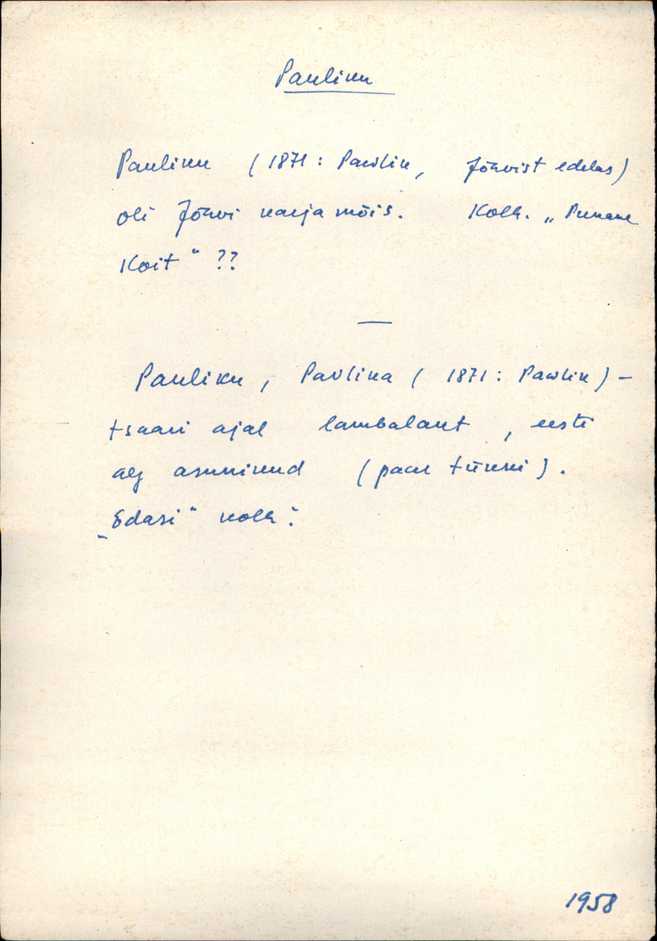 Pauliku
Pauliku (1871: Pawlik, Jõhvist edelas)
oli Jõhvi karjamõis. Kolh. „Punane
Koit" ??
—
Pauliku, Pavlika (1871: Pawlik) –
tsaari ajal lambalaut, eesti
aj asunikud (paar tükki).
„Edasi" kolh.
1958